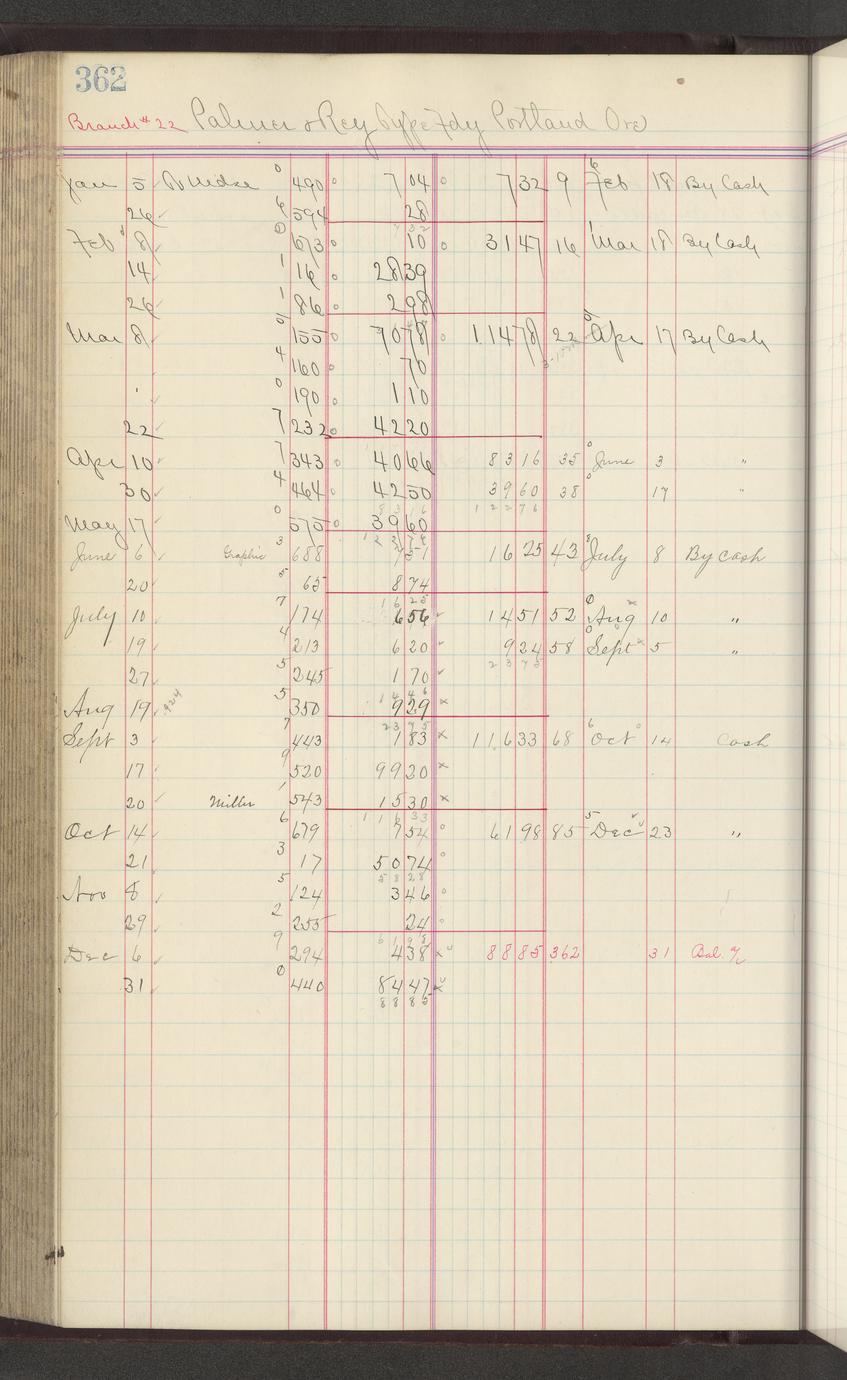 362
Branch # 22 Palmer & Rey Type Fdy Portland Ore
Jan 5 To Mdse 0 490 7 04 7 32 9 6 Feb 18 By Cash
26 6 594 28
7 32
Feb 8 0 673 10 31 47 16 1 Mar 18 By Cash
14 1 16 28 39
26 1 86 2 98
Mar 8 5 155 70 78 114 78 22 5 Apr 17 By Cash
4 160 70
' 0 190 1 10
22 7 232 42 20
Apr 10 7 343 40 66 83 16 35 0 June 3 "
30 4 464 42 50 39 60 38 0 17 "
83 16 122 76
May 17 0 575 39 60
122 76
June 6 Graphic 3 688 7 51 16 25 43 8 July 8 By cash
20 5 65 8 74
16 25
July 10 7 174 6 56 14 51 52 0 Aug 10 "
19 4 213 6 20 9 24 58 0 Sept 5 "
23 75
27 5 245 1 70
14 46
Aug 19 924 5 350 9 29
23 75
Sept 3 7 443 1 83 116 33 68 6 Oct 14 Cash
17 9 520 99 20
20 Miller 1 543 15 30
116 33
Oct 14 6 679 7 54 61 98 85 5 Dec 23 "
21 3 17 50 74
58 28
Nov 8 5 124 3 46
29 2 255 24
61 98
Dec 6 9 294 4 38 88 85 362 31 Bal. %
31 0 440 84 47
88 85